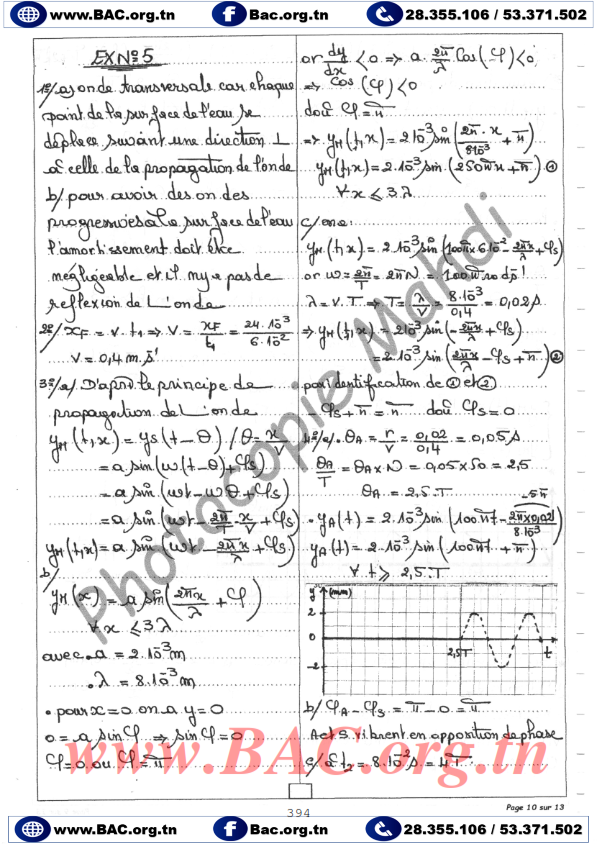 www.BAC.org.tn Bac.org.tn 28.355.106 / 53.371.502
EX N° 5
1°/a) onde transversale car chaque
point de la surface de l'eau se
déplace suivant une direction ⊥
à celle de la propagation de l'onde
b/ pour avoir des ondes
progressives à la surface de l'eau
l'amortissement doit être
négligeable et il n'y a pas de
reflexion de L'onde
2°/ x_F = v. t₁ ⇒ v = x_F/t₁ = 24.10⁻³/6.10⁻²
v = 0,4 m.s⁻¹
3°/a) D'après le principe de
propagation de L'onde
y_M(t,x) = y_S(t - θ) / θ = x/v
= a sin(w(t-θ)+φ_S)
= a sin(wt - wθ + φ_S)
= a sin(wt - 2π/T x/v + φ_S)
y_M(t,x) = a sin(wt - 2πx/λ + φ_S)
b/
y_M(x) = a sin(2πx/λ + φ)
∀x ≤ 3λ
avec . a = 2.10⁻³ m
. λ = 8.10⁻³ m
. pour x=0 on a y=0
0 = a sin φ ⇒ sin φ = 0
φ=0 ou φ=π
or dy/dx < 0 ⇒ a. 2π/λ cos(φ) < 0
⇒ cos(φ) < 0
doù φ = π
⇒ y_M(t₁,x) = 2.10⁻³ sin(2π.x/8.10⁻³ + π)
y_M(t₁,x) = 2.10⁻³ sin(250πx + π) ①
∀x ≤ 3.λ
c/ on a:
y_M(t₁,x) = 2.10⁻³ sin(100π×6.10⁻² - 2πx/λ + φ_S)
or w = 2π/T = 2πN = 100π rad s⁻¹
λ = v.T ⇒ T = λ/v = 8.10⁻³/0,4 = 0,02 s
⇒ y_M(t₁,x) = 2.10⁻³ sin(-2πx/λ + φ_S)
= 2.10⁻³ sin(2πx/λ - φ_S + π) ②
par identification de ① et ②
- φ_S + π = π doù φ_S = 0
4°/a/ . θ_A = r/v = 0,02/0,4 = 0,05 s
θ_A/T = θ_A × N = 0,05 × 50 = 2,5
θ_A = 2,5.T
-5π
. y_A(t) = 2.10⁻³ sin(100πt - 2π×0,02/8.10⁻³)
y_A(t) = 2.10⁻³ sin(100πt + π)
∀ t ≥ 2,5.T
y (mm)
2
0
2,5T t
-2
b/ φ_A - φ_S = π - 0 = π
A et S vibrent en opposition de phase
c/ Δt₂ = 8.10⁻² s = 4T
Photocopie Mahdi
www.BAC.org.tn
Page 10 sur 13
394
www.BAC.org.tn Bac.org.tn 28.355.106 / 53.371.502